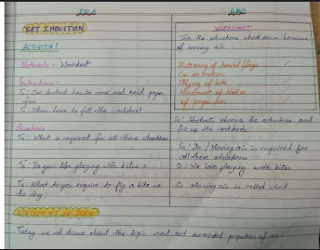 SET INDUCTION
ACTIVITY!
Materials - Worksheet
Instructions:
T: One student has to come and hold paper
fan
T: Then have to fill the worksheet
Questions
T: What is required for all these situations
T: Do you like playing with kites?
T: What do you require to fly a kite in
the sky?
Today we will discuss about the topic wind and associated properties of air
WORKSHEET
Tick the situations which occur because
of moving air
Fluttering of flags
Flying of kite
Movement of blades
of paper fan
S: Students observe the activities and
fill up the worksheet
S: Moving air is required for
all these situations
S: We love playing with kites
S: Moving air is called wind